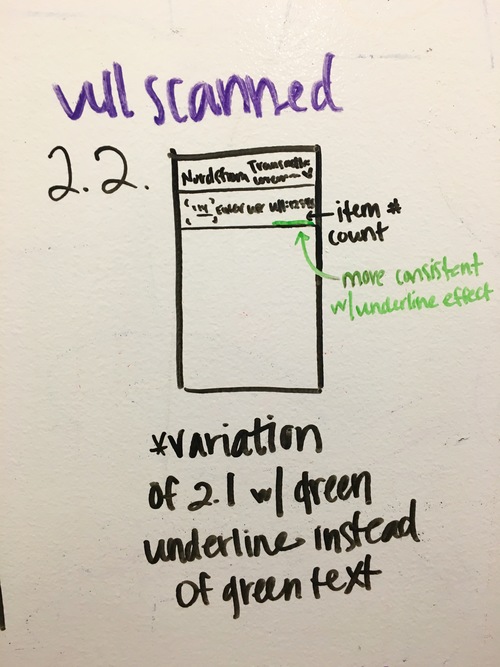 vUll scanned
2.2.
Nordstrom
item *
count
more consistent
w/underline effect
*variation
of 2.1 w/ green
underline instead
of green text